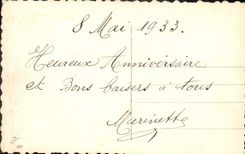 8 Mai 1933.
Heureux Anniversaire
et Bons baisers à tous
Marinette